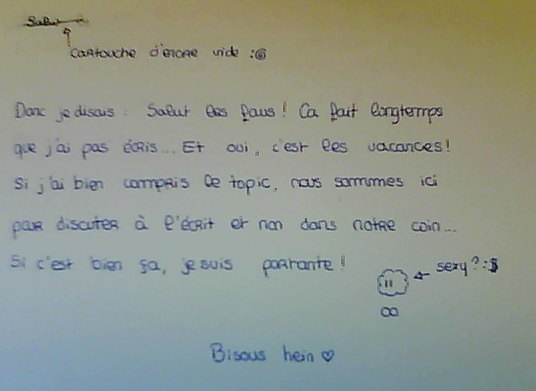 Salut
Cartouche d'encre vide :@
Donc je disais : Salut les fous ! Ca fait longtemps
que j'ai pas écris... Et oui, c'est les vacances !
Si j'ai bien compris le topic, nous sommes ici
pour discuter à l'écrit et non dans notre coin...
Si c'est bien ça, je suis partante !
sexy ? :$
Bisous hein ♡